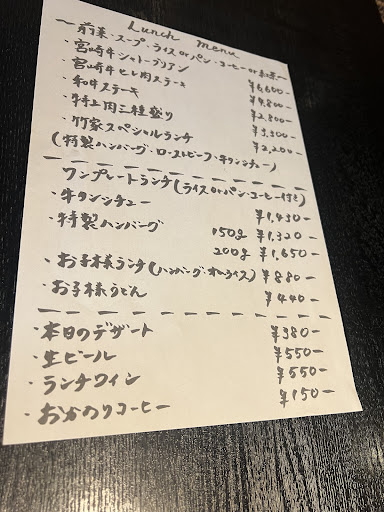 Lunch menu
～前菜・スープ・ライスorパン・コーヒーor紅茶～
・宮崎牛シャトーブリアン ¥6,600－
・宮崎牛ヒレ肉ステーキ ¥4,800－
・和牛ステーキ ¥2,800－
・特上肉三種盛り ¥3,300－
・竹家スペシャルランチ ¥2,200－
(特製ハンバーグ・ローストビーフ・牛タンシチュー)
ワンプレートランチ(ライスorパン・コーヒー付き)
・牛タンシチュー ¥1,430－
・特製ハンバーグ 150g ¥1,320－
200g ¥1,650－
・お子様ランチ(ハンバーグ・オムライス) ¥880－
・お子様うどん ¥440－
・本日のデザート ¥380－
・生ビール ¥550－
・ランチワイン ¥550－
・おかわりコーヒー ¥150－